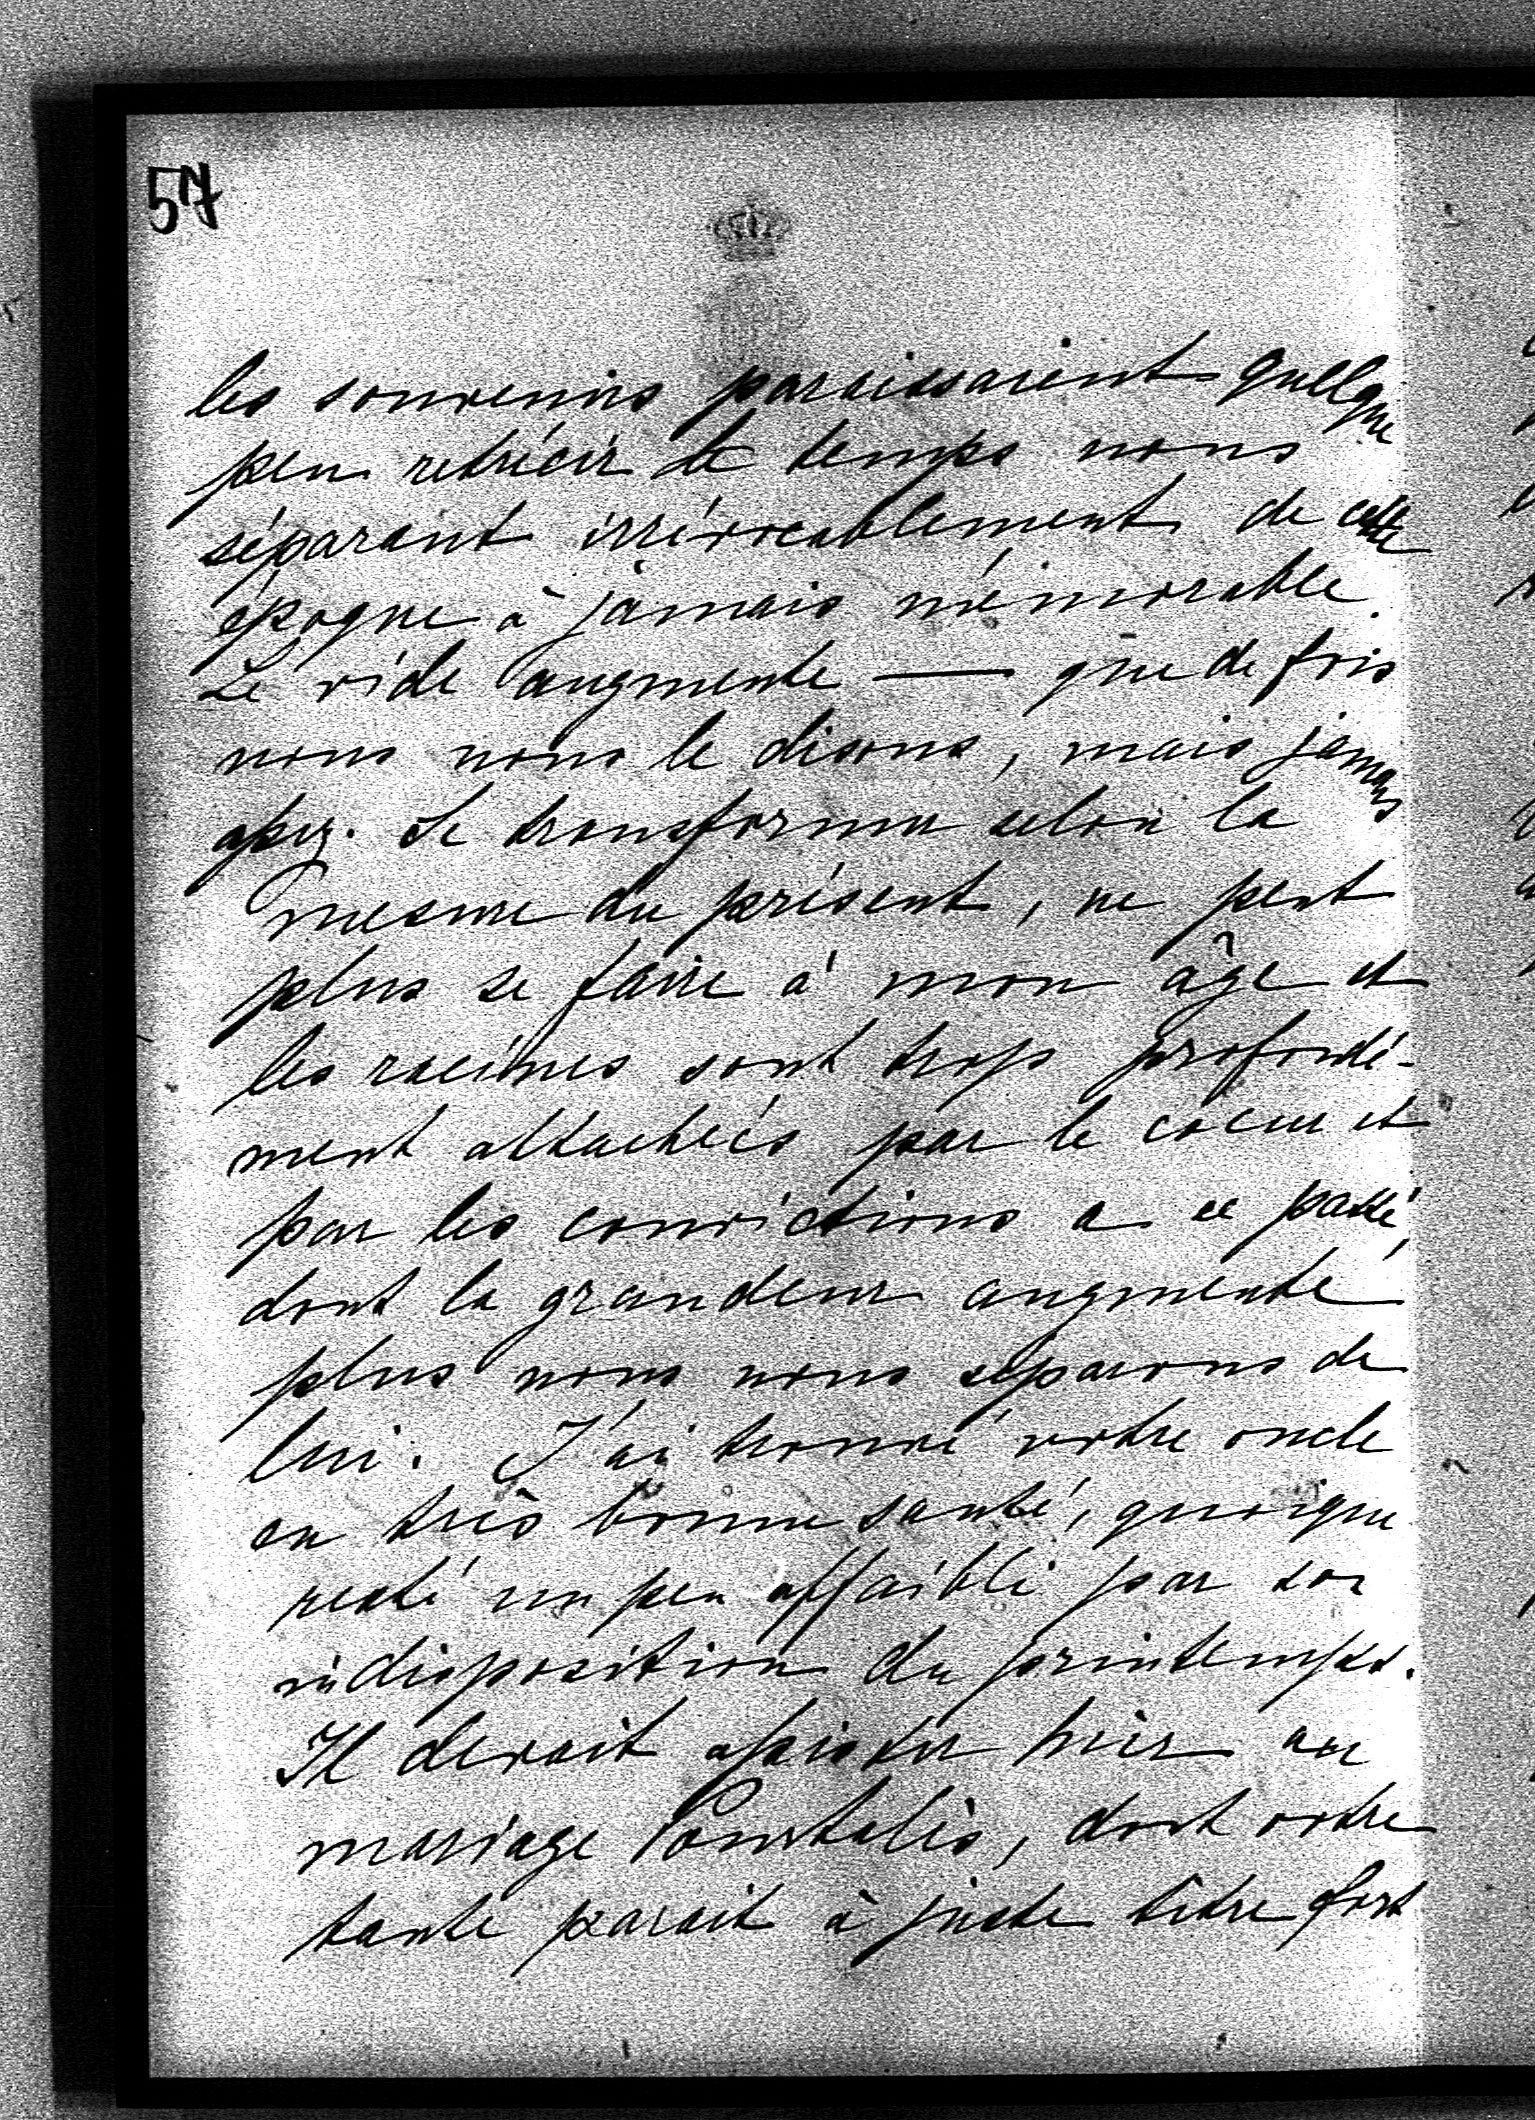 57
les souvenirs paraissaient quelque
peu retrécir le temps nous
séparant irrévocablement de cette
époque à jamais mémorable.
Le vide augmente — que de fois
nous nous le disons, mais jamais
assez. Se transformer selon la
mesure du présent, ne peut
plus se faire à mon âge et
les racines sont trop profondé-
ment attachées par le coeur et
par les convictions a ce passé,
dont la grandeur augmente
plus nous nous séparons de
lui. J'ai trouvé votre oncle
en très bonne santé, quoique
resté un peu affaibli par son
indisposition du printemps.
Il devait assister hier au
mariage Pourtalès, dont votre
tante parait à juste titre fort